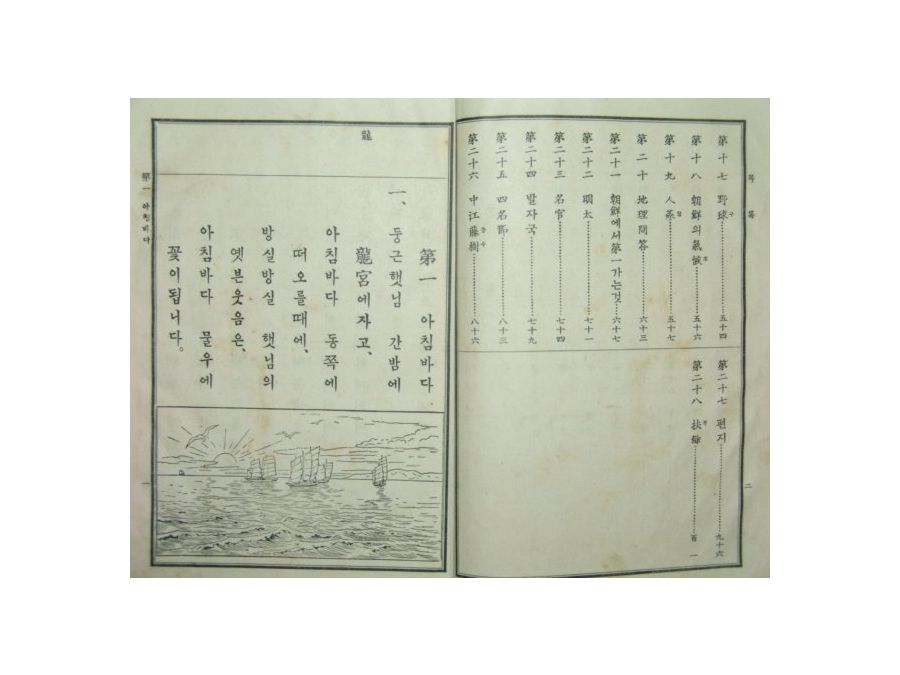 目錄
第十七 野球 五十四
第十八 朝鮮의氣候 五十六
第十九 人蔘 五十七
第二十 地理問答 六十三
第二十一 朝鮮에서第一가는것 六十七
第二十二 明太 七十一
第二十三 名官 七十四
第二十四 발자국 七十九
第二十五 四名節 八十三
第二十六 中江藤樹 八十六
第二十七 편지 九十六
第二十八 扶餘 百一
二
龍
第一 아침바다
一、둥근햇님 간밤에
龍宮에자고、
아침바다 동쪽에
떠오를때에、
방실방실 햇님의
옛븐웃음은、
아침바다 물우에
꽃이됩니다。
第一 아침바다
一